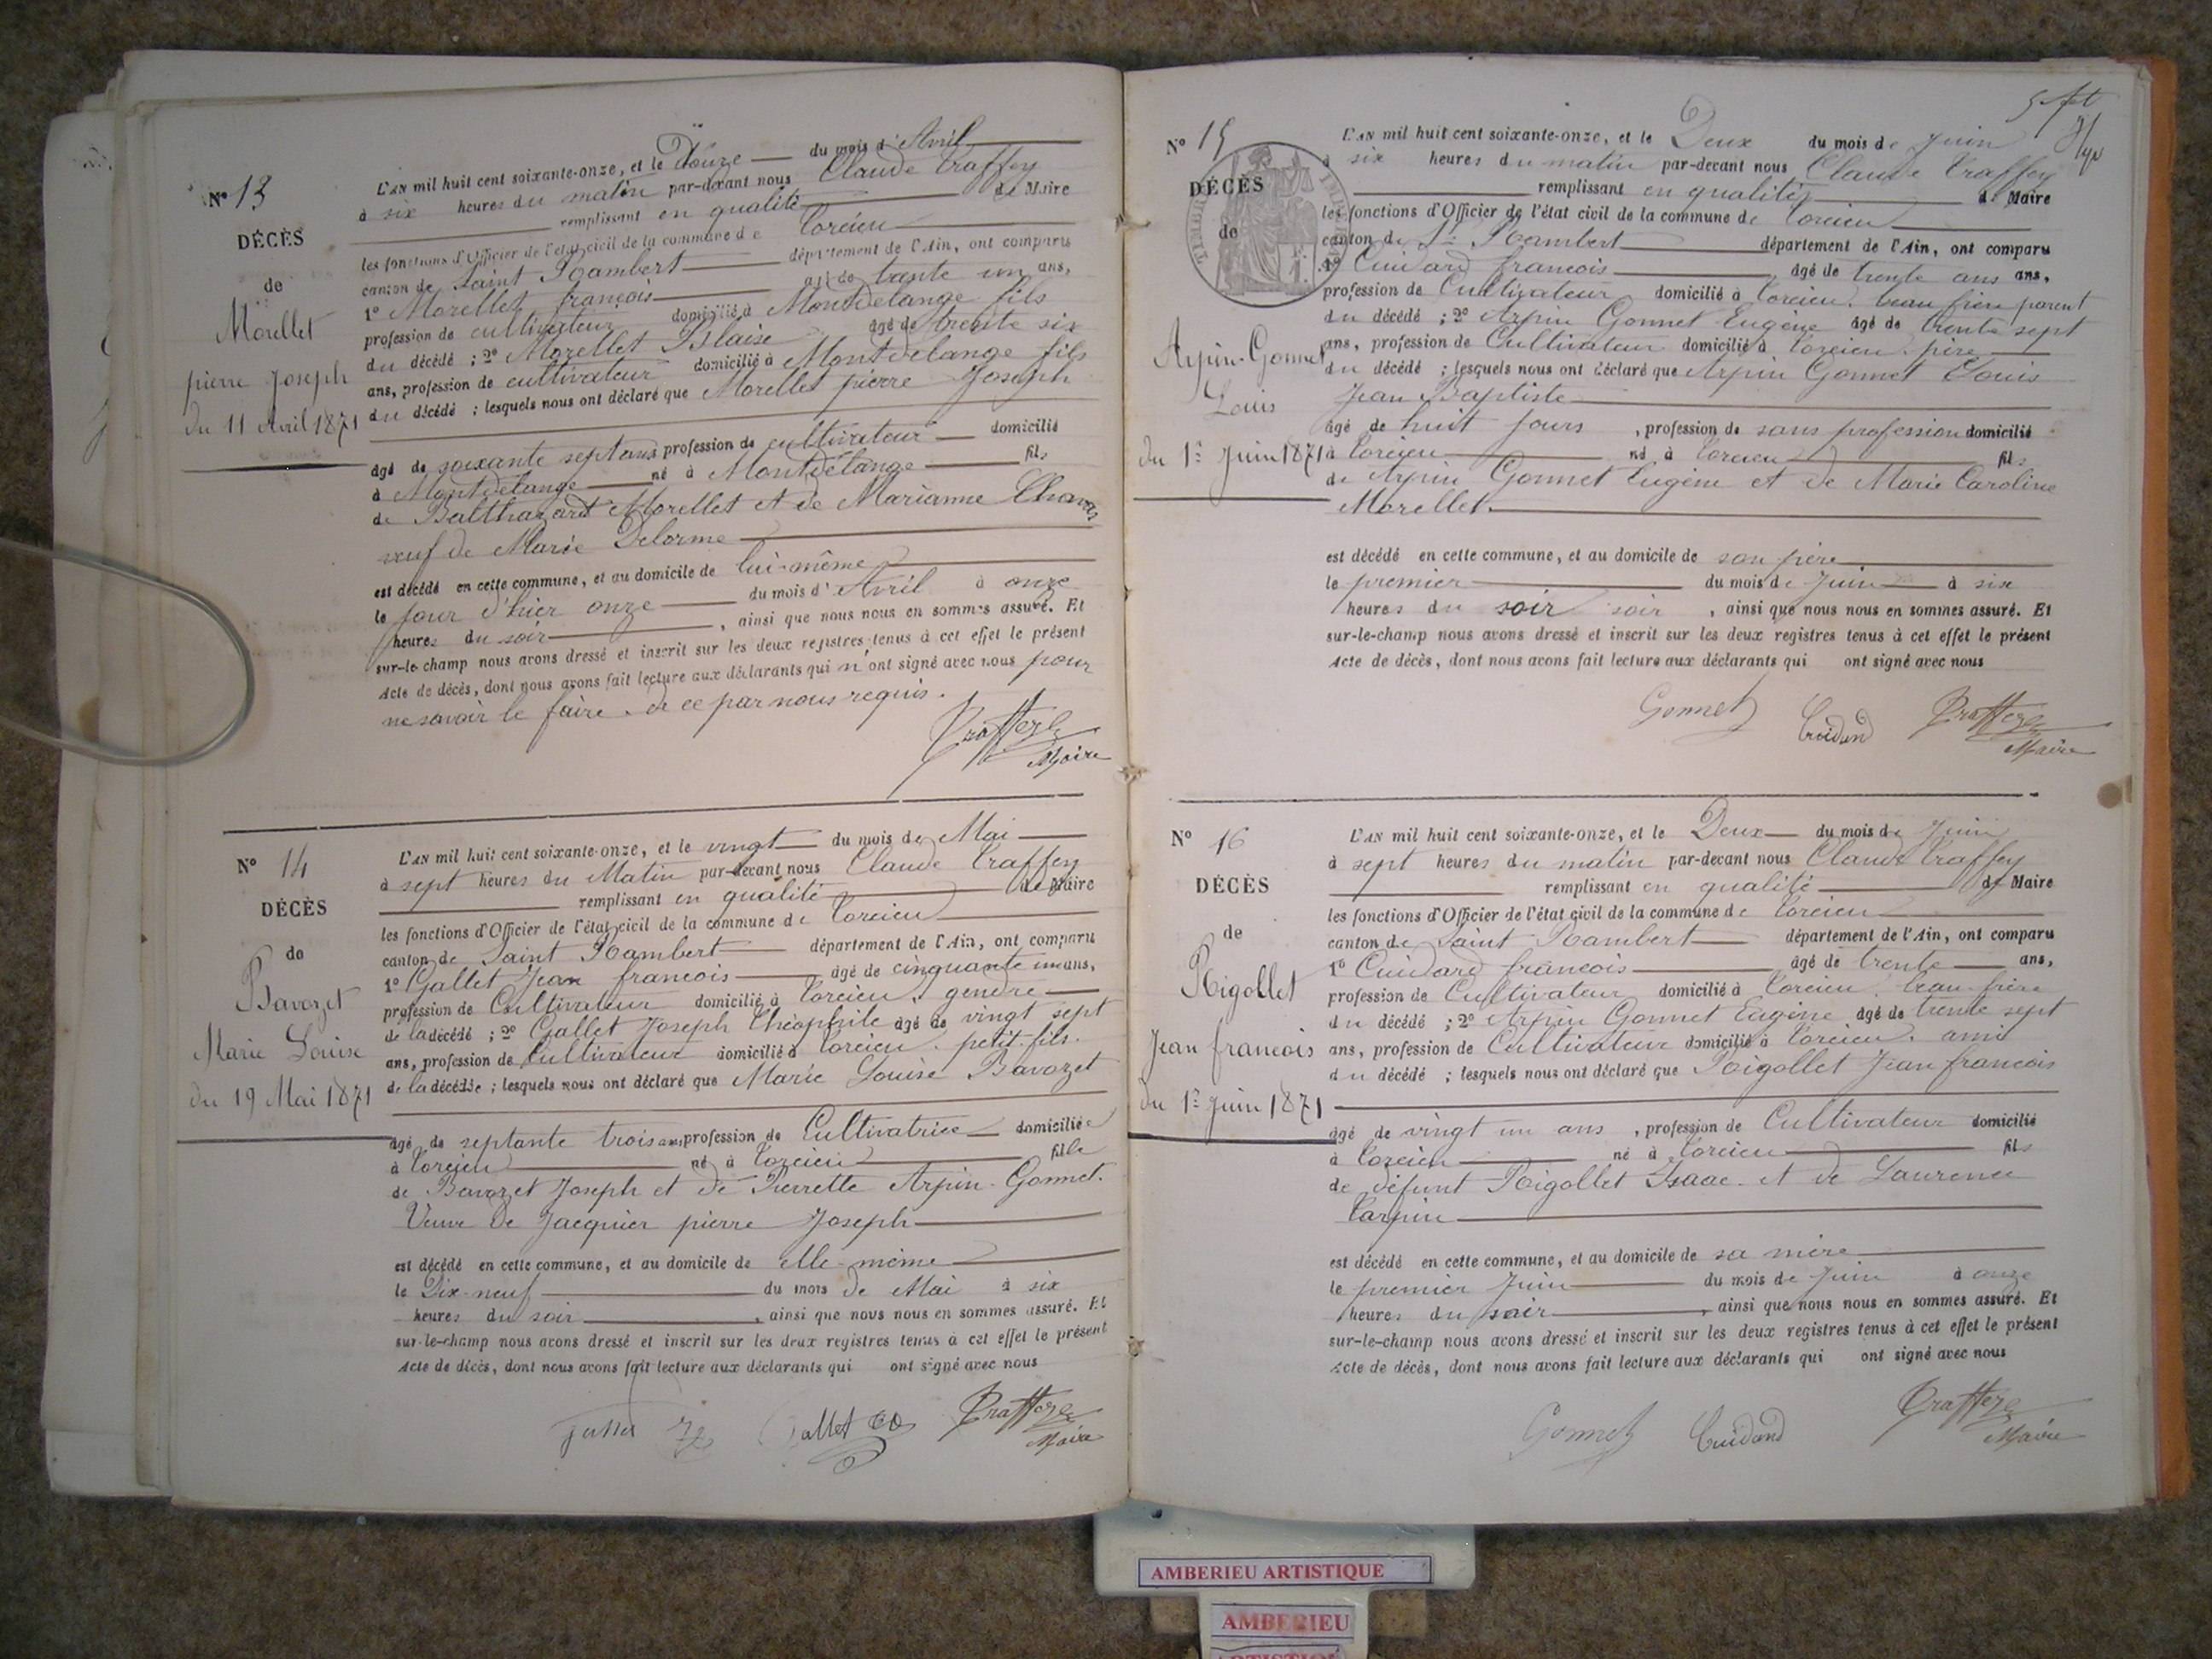 N° 13
DÉCÈS
de
Morellet
pierre Joseph
du 11 Avril 1871
L'AN mil huit cent soixante-onze, et le Douze du mois d'Avril
à six heures du matin par-devant nous Claude Traffey
remplissant en qualité de Maire
les fonctions d'Officier de l'état civil de la commune de Torcieu
canton de Saint Rambert département de l'Ain, ont comparu
1° Morellet françois âgé de trente un ans,
profession de cultivateur domicilié à Montdelange fils
du décédé ; 2° Morellet Blaise âgé de trente six
ans, profession de cultivateur domicilié à Montdelange fils
du décédé ; lesquels nous ont déclaré que Morellet pierre Joseph
âgé de soixante sept ans profession de cultivateur domicilié
à Montdelange né à Montdelange fils
de Balthazard Morellet et de Marianne
veuf de Marie Delorme
est décédé en cette commune, et au domicile de lui-même
le jour d'hier onze du mois d'Avril à onze
heures du soir, ainsi que nous nous en sommes assuré. Et
sur-le-champ nous avons dressé et inscrit sur les deux registres tenus à cet effet le présent
Acte de décès, dont nous avons fait lecture aux déclarants qui n'ont signé avec nous pour
ne savoir le faire. de ce par nous requis.
Traffey
Maire
N° 14
DÉCÈS
de
Bavozet
Marie Louise
du 19 Mai 1871
L'AN mil huit cent soixante-onze, et le vingt du mois de Mai
à sept heures du Matin par-devant nous Claude Traffey
remplissant en qualité de Maire
les fonctions d'Officier de l'état civil de la commune de Torcieu
canton de Saint Rambert département de l'Ain, ont comparu
1° Gallet Jean francois âgé de cinquante un ans,
profession de Cultivateur domicilié à Torcieu. gendre
de la décédé ; 2° Gallet Joseph Théophile âgé de vingt sept
ans, profession de Cultivateur domicilié à Torcieu. petit-fils.
de la décédée ; lesquels nous ont déclaré que Marie Louise Bavozet
âgé de septante trois ans, profession de Cultivatrice domiciliée
à Torcieu né à Torcieu fille
de Bavozet Joseph et de Pierrette Arpin-Gonnet.
Veuve de Jacquier pierre Joseph
est décédé en cette commune, et au domicile de elle-même
le Dix-neuf du mois de Mai à six
heures du soir, ainsi que nous nous en sommes assuré. Et
sur-le-champ nous avons dressé et inscrit sur les deux registres tenus à cet effet le présent
Acte de décès, dont nous avons fait lecture aux déclarants qui ont signé avec nous
Gallet Traffey
Maire
N° 15
DÉCÈS
de
Arpin-Gonnet
Louis
du 1er Juin 1871
L'AN mil huit cent soixante-onze, et le Deux du mois de Juin
à six heures du matin par-devant nous Claude Traffey
remplissant en qualité de Maire
les fonctions d'Officier de l'état civil de la commune de Torcieu
canton de St Rambert département de l'Ain, ont comparu
1° Cuidard francois âgé de trente ans ans,
profession de Cultivateur domicilié à Torcieu. beau frère parent
du décédé ; 2° Arpin Gonnet Eugène âgé de trente sept
ans, profession de Cultivateur domicilié à Torcieu. père
du décédé ; lesquels nous ont déclaré que Arpin Gonnet Louis
Jean Baptiste
âgé de huit jours, profession de sans profession domicilié
à Torcieu né à Torcieu fils
de Arpin Gonnet Eugène et de Marie Caroline
Morellet.
est décédé en cette commune, et au domicile de son père
le premier du mois de Juin à six
heures du soir soir, ainsi que nous nous en sommes assuré. Et
sur-le-champ nous avons dressé et inscrit sur les deux registres tenus à cet effet le présent
Acte de décès, dont nous avons fait lecture aux déclarants qui ont signé avec nous
Gonnet Cuidard Traffey
Maire
N° 16
DÉCÈS
de
Rigollet
Jean francois
du 1er Juin 1871
L'AN mil huit cent soixante-onze, et le Deux du mois de Juin
à sept heures du matin par-devant nous Claude Traffey
remplissant en qualité de Maire
les fonctions d'Officier de l'état civil de la commune de Torcieu
canton de Saint Rambert département de l'Ain, ont comparu
1° Cuidard francois âgé de trente ans,
profession de Cultivateur domicilié à Torcieu. beau-frère
du décédé ; 2° Arpin Gonnet Eugène âgé de trente sept
ans, profession de Cultivateur domicilié à Torcieu. ami
du décédé ; lesquels nous ont déclaré que Rigollet Jean francois
âgé de vingt un ans, profession de Cultivateur domicilié
à Torcieu né à Torcieu fils
de défunt Rigollet Isaac. et de Laurence
Tarpin
est décédé en cette commune, et au domicile de sa mère
le premier Juin du mois de Juin à onze
heures du soir, ainsi que nous nous en sommes assuré. Et
sur-le-champ nous avons dressé et inscrit sur les deux registres tenus à cet effet le présent
Acte de décès, dont nous avons fait lecture aux déclarants qui ont signé avec nous
Gonnet Cuidard Traffey
Maire
AMBERIEU ARTISTIQUE
AMBERIEU
ARTISTIQUE